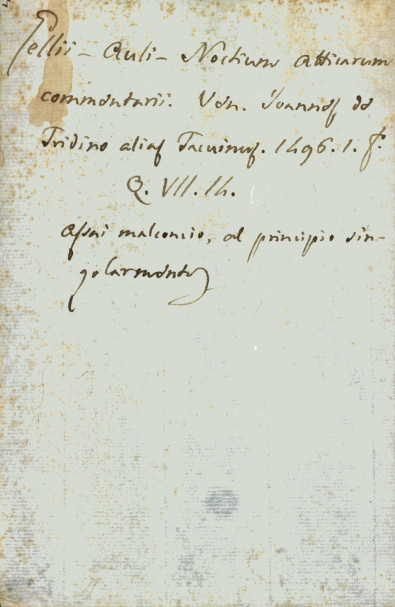 Gellii - Auli - Noctium Atticarum
commentarii. Ven. Joannes de
Tridino alias Tacuinus. 1496. 1. f.
Q. VII. 14.
assai malconcio, al principio sin-
golarmente